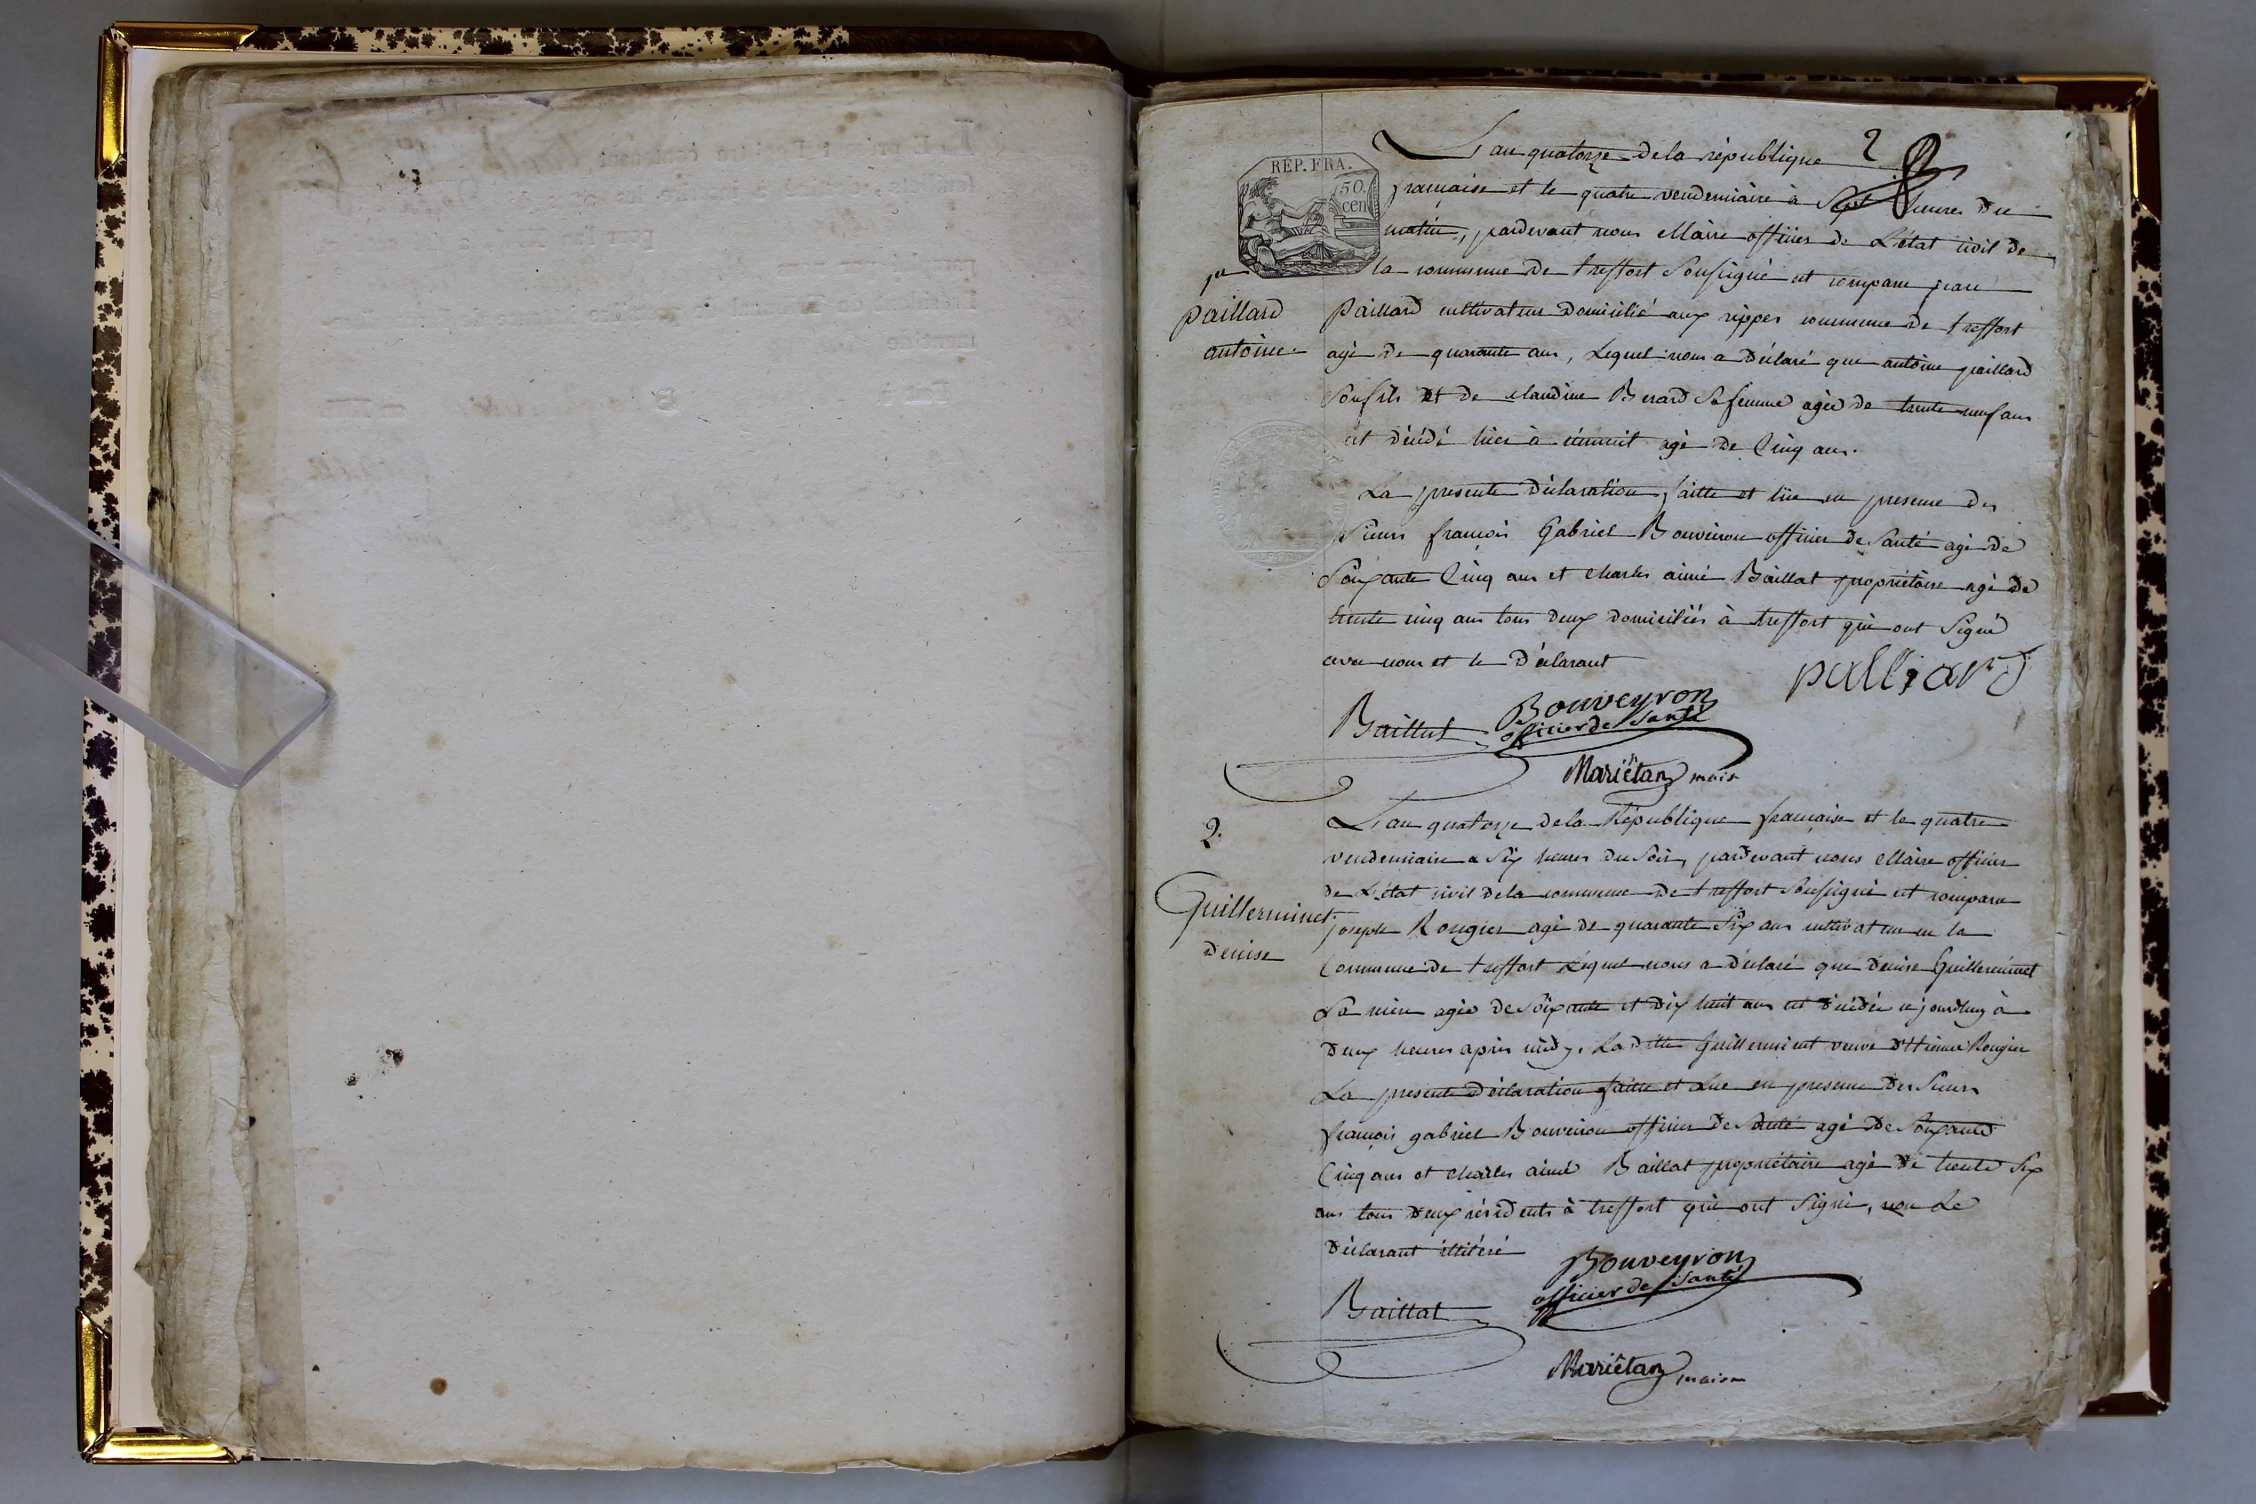 2
L'an quatorze de la république
REP. FRA.
50.
cen
française et le quatre vendemiaire à sept heures du
matin, pardevant nous Maire officier de L'état civil de
la commune de treffort soussigné est comparu jean
1er
paillard
antoine
paillard cultivateur domicilié aux rippes commune de treffort
agé de quarante ans, Lequel nous a déclaré que antoine paillard
son fils et de claudine Berard sa femme agée de trente neuf ans
est décédé hier à minuit agé de Cinq ans.
La presente déclaration faitte et lüe en presence des
Sieurs françois Gabriel Bouveiron officier de santé agé de
soixante Cinq ans et charles aimé Baillat propriétaire agé de
trente cinq ans tous deux domiciliés à treffort qui ont signé
avec nous et le déclarant
palliard
Baillat
Bouveyron
officier de santé
Mariëtan maire
2.
Guillerminet
denise
L'an quatorze de la République française et le quatre
vendemiaire a six heures du soir, pardevant nous Maire officier
de L'état civil de la commune de treffort soussigné est comparu
joseph Rougier agé de quarante six ans cultivateur en la
Commune de treffort Lequel nous a déclaré que denise Guillerminet
sa mère agée de soixante et dix huit ans est décédée ajourdhuy à
deux heures après midy. La ditte Guillerminet veuve d'Etienne Rougier
La presente déclaration faitte et Lue en presence des Sieurs
françois gabriel Bouveiron officier de santé agé de soixante
Cinq ans et charles aimé Baillat propriétaire agé de trente six
ans tous deux résidents à treffort qui ont signé, non Le
déclarant illitéré
Bouveyron
officier de santé
Baillat
Mariêtan maire